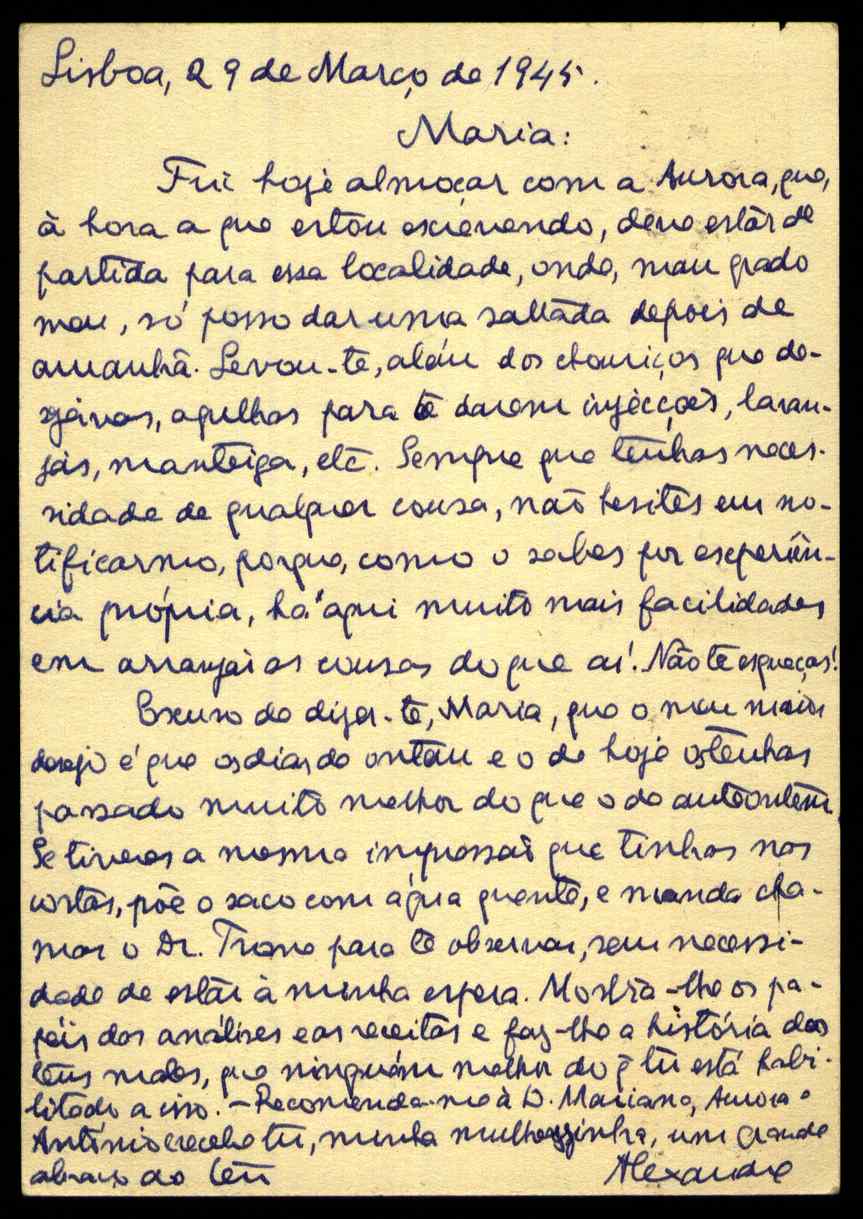 Lisboa, 29 de Março de 1945.
Maria:
Fui hoje almoçar com a Aurora, que,
à hora a que estou escrevendo, deve estar de
partida para essa localidade, onde, mau grado
meu, só posso dar uma saltada depois de
amanhã. Levou-te, além dos chouriços que de-
sejavas, agulhas para te darem injecções, laran-
jas, manteiga, etc. Sempre que tenhas neces-
sidade de qualquer cousa, não hesites em no-
tificarmo, porque, como o sabes por experiên-
cia própria, há aqui muito mais facilidades
em arranjar as cousas do que aí! Não te esqueças!
Escuso de dizer-te, Maria, que o meu maior
desejo é que os dias de ontem e o de hoje os tenhas
passado muito melhor do que o de anteontem.
Se tiveres a mesma impressão que tinhas nas
costas, põe o saco com água quente, e manda cha-
mar o Dr. para te observar, sem necessi-
dade de estar à minha espera. Mostra-lhe os pa-
péis das análises e as receitas e faz-lhe a história dos
teus males, que ninguém melhor do q̃ tu está habi-
litado a isso. - Recomenda-me à D. Mariana, Aurora e
António e recebe tu, minha mulherzinha, um grande
abraço do teu Alexandre